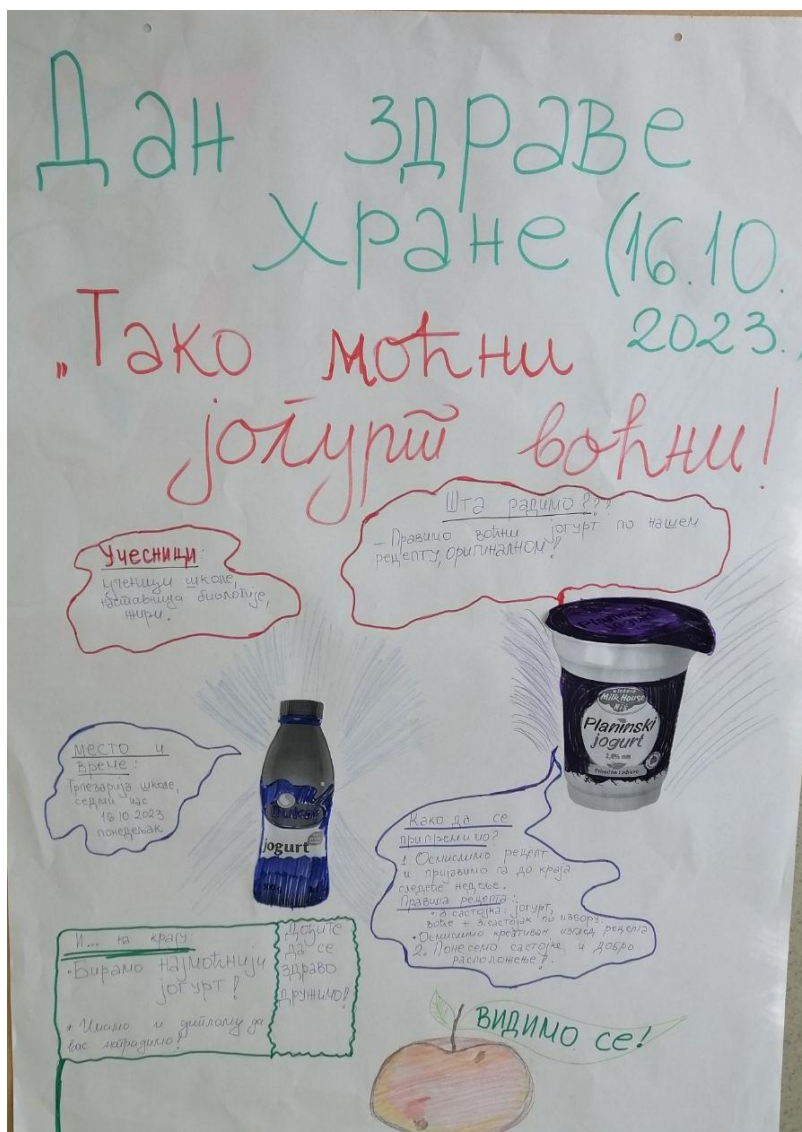 Дан здраве
хране (16.10.
2023.,
„Тако моћни
јогурт воћни!
Учесници:
ученици школе,
наставница биологије,
жири.
Шта радимо???
- Правимо воћни јогурт по нашем
рецепту, оригиналном!
Planinski
Milk House
Niš
Planinski
jogurt
2,8% mm
место и
време:
Трпезарија школе,
седми час
16.10.2023.
понедељак
jogurt
Како да се
припремимо?
1. Осмислимо рецепт
и пријавимо га до краја
следеће недеље.
Правила рецепта:
• 3 састојка: јогурт,
воће + 3. састојак по избору
• Осмислимо креативан изглед рецепта
2. Понесемо састојке, и добро
расположење!
И... на крају:
• Бирамо најмоћнији
јогурт!
• Имамо и диплому да
вас наградимо!
Дођите
да се
здраво
дружимо!
ВИДИМО СЕ!